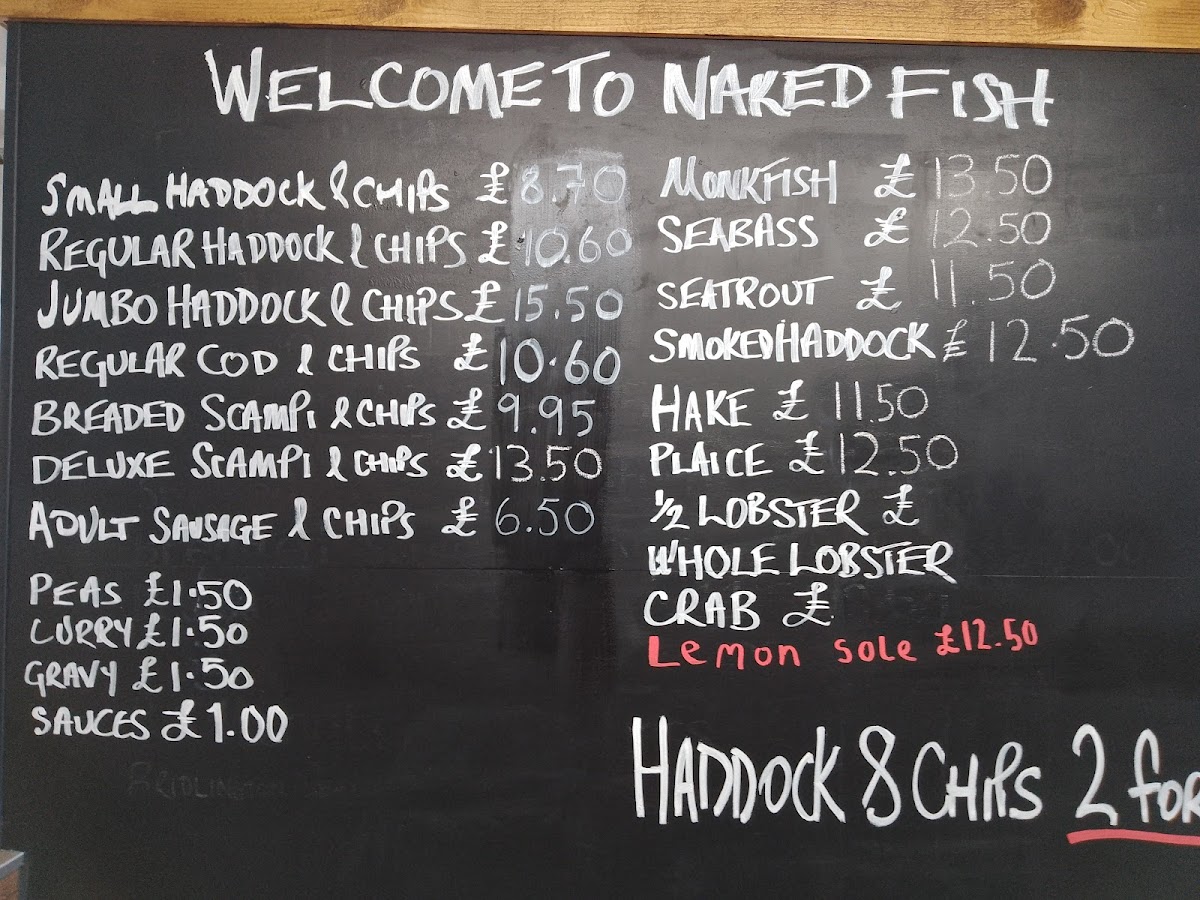 WELCOME TO NAKED FISH
SMALL HADDOCK & CHIPS £8.70
REGULAR HADDOCK & CHIPS £10.60
JUMBO HADDOCK & CHIPS £15.50
REGULAR COD & CHIPS £10.60
BREADED SCAMPI & CHIPS £9.95
DELUXE SCAMPI & CHIPS £13.50
ADULT SAUSAGE & CHIPS £6.50
PEAS £1.50
CURRY £1.50
GRAVY £1.50
SAUCES £1.00
BRIDLINGTON
MONKFISH £13.50
SEABASS £12.50
SEATROUT £11.50
SMOKED HADDOCK £12.50
HAKE £11.50
PLAICE £12.50
1/2 LOBSTER £
WHOLE LOBSTER
CRAB £
Lemon sole £12.50
HADDOCK & CHIPS 2 FOR